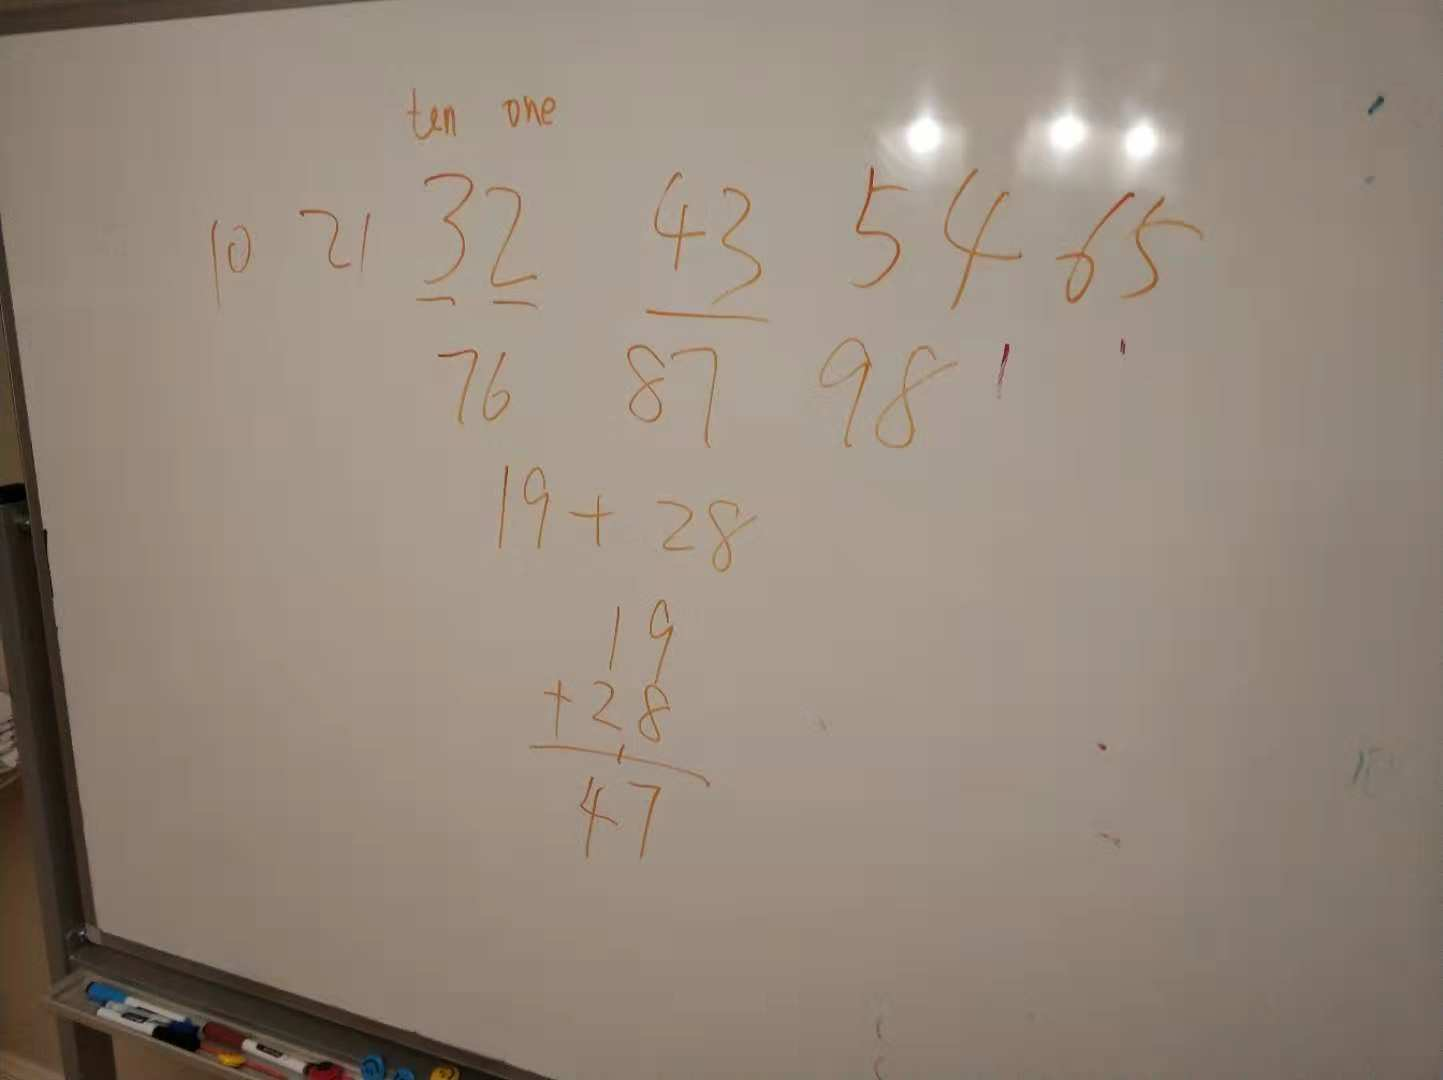 ten one
10 21 32 43 54 65
76 87 98
19 + 28
19
+ 28
1
47